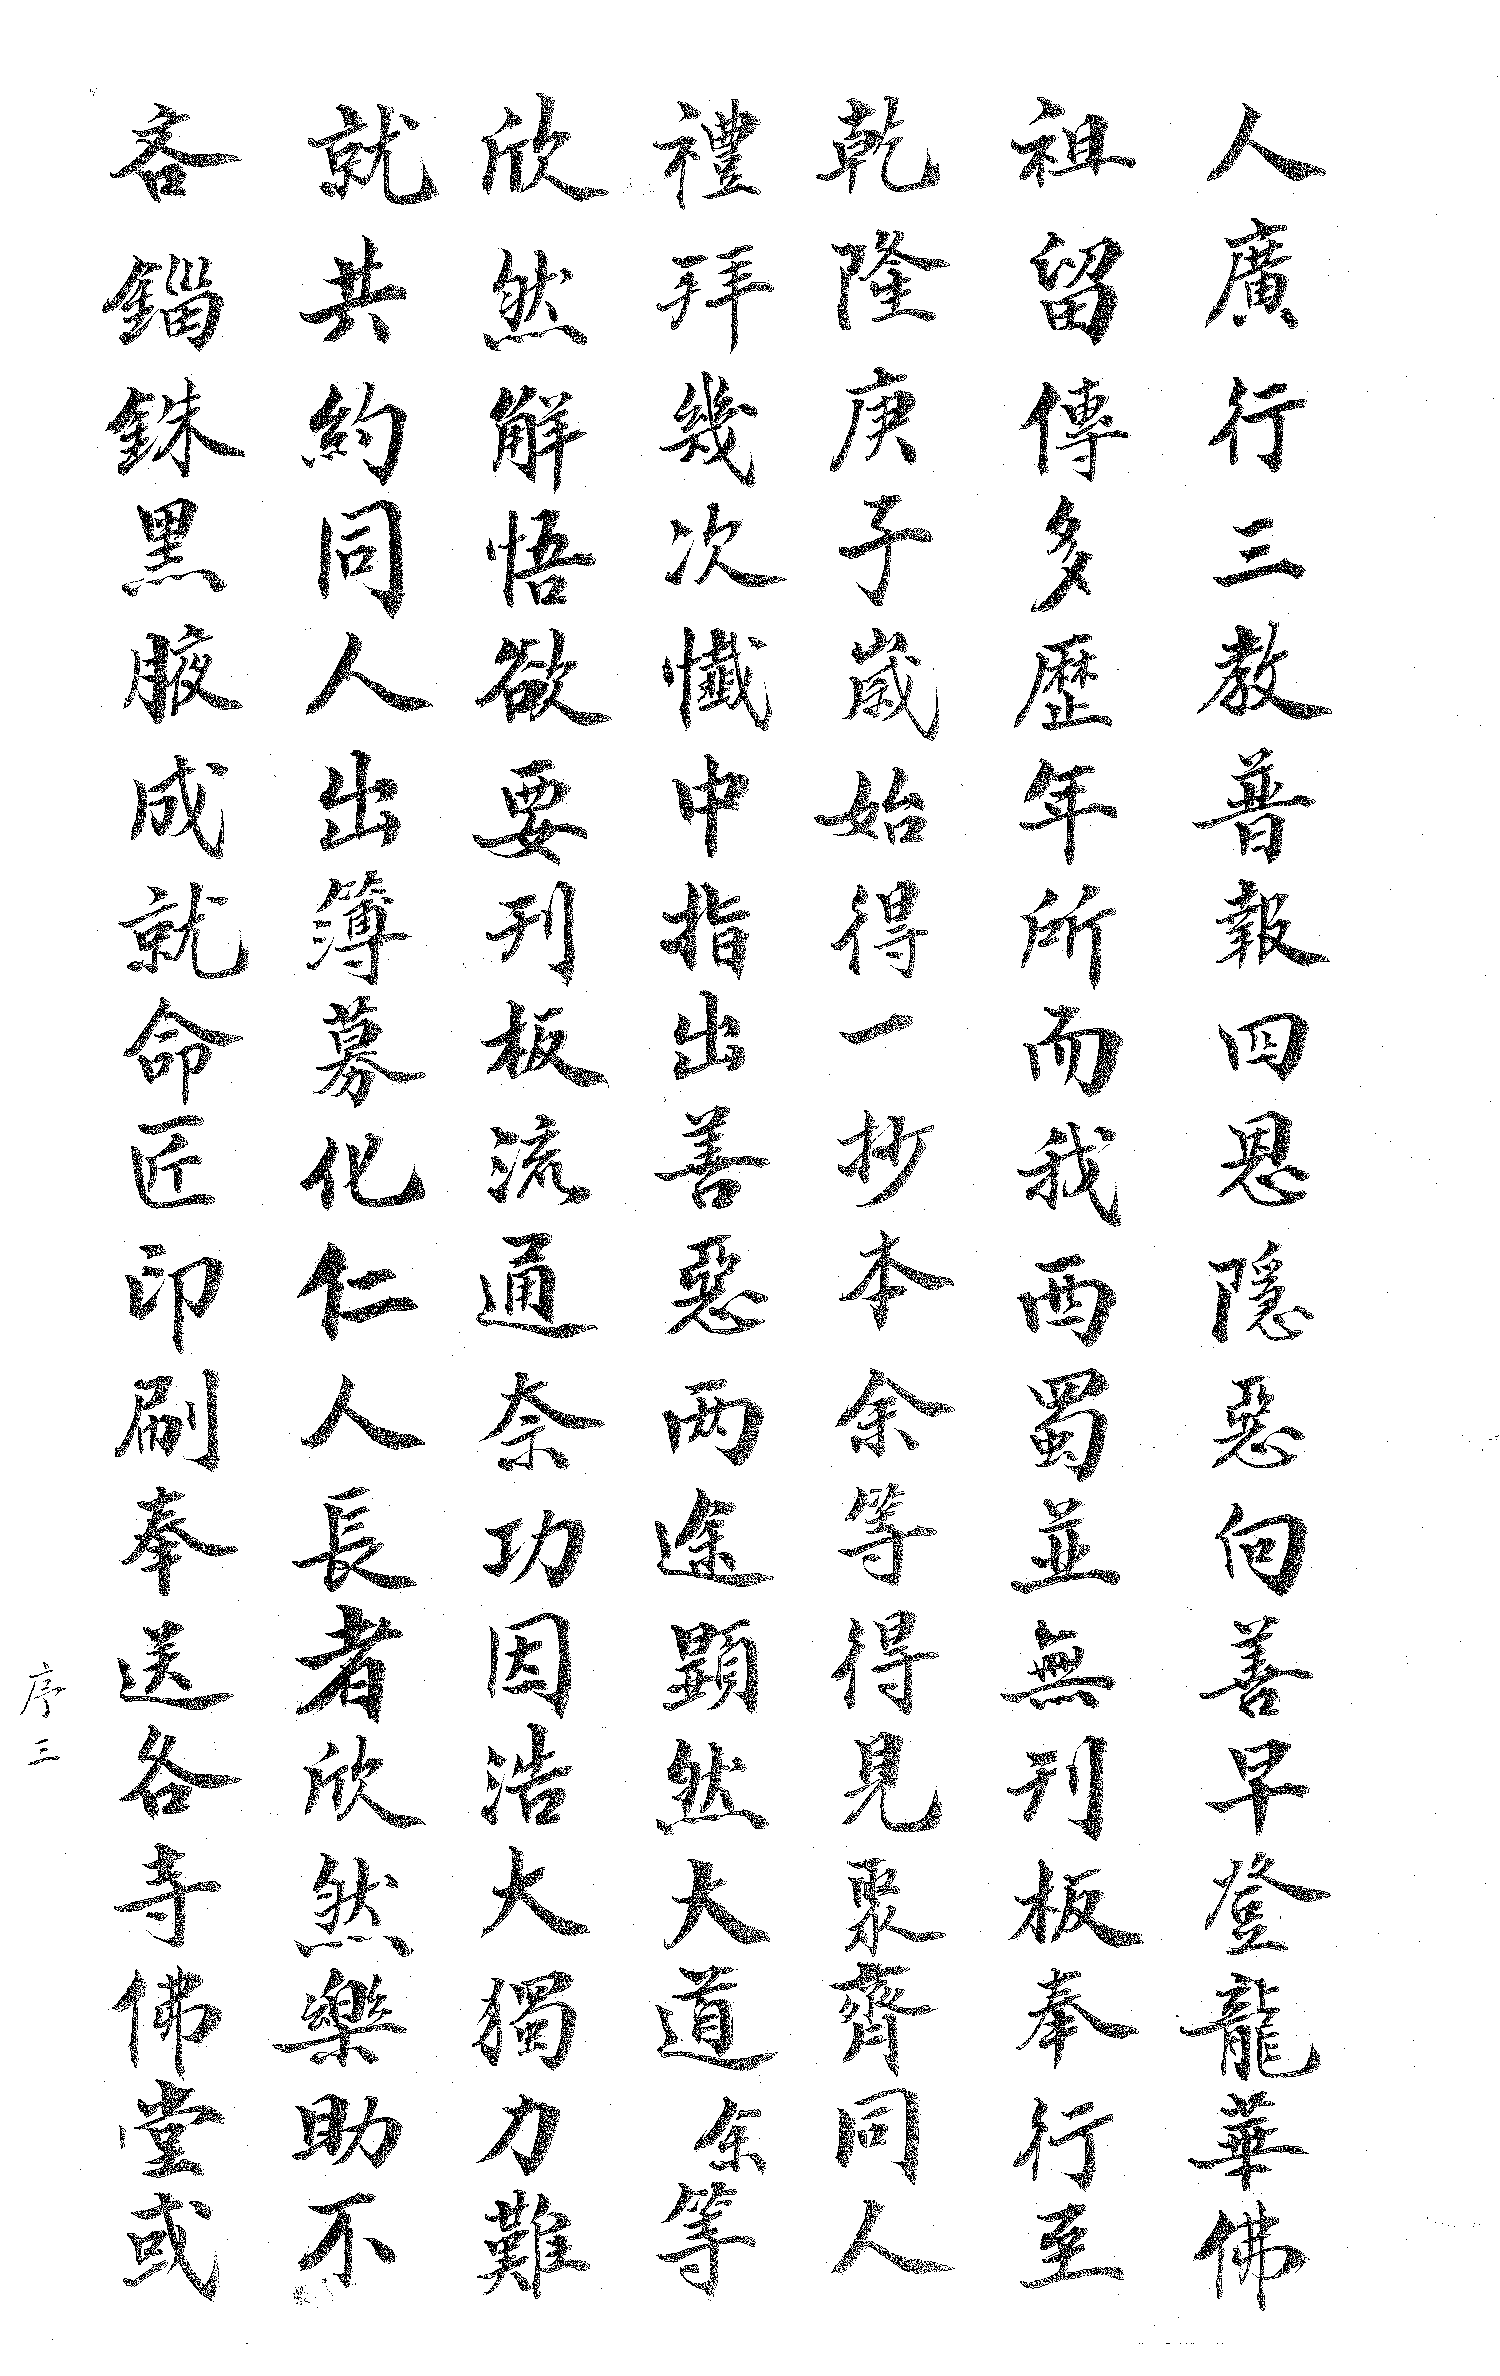 人廣行三教普報四恩隱惡向善早登龍華佛
祖留傳多歷年所而我西蜀並無刊板奉行至
乾隆庚子歲始得一抄本余等得見聚齊同人
禮拜幾次懺中指出善惡两途顕然大道余等
欣然解悟欲要刊板流通奈功因浩大獨力難
就共約同人出簿募化仁人長者欣然樂助不
吝錙銖黑腋成就命匠印刷奉送各寺佛堂或
序三